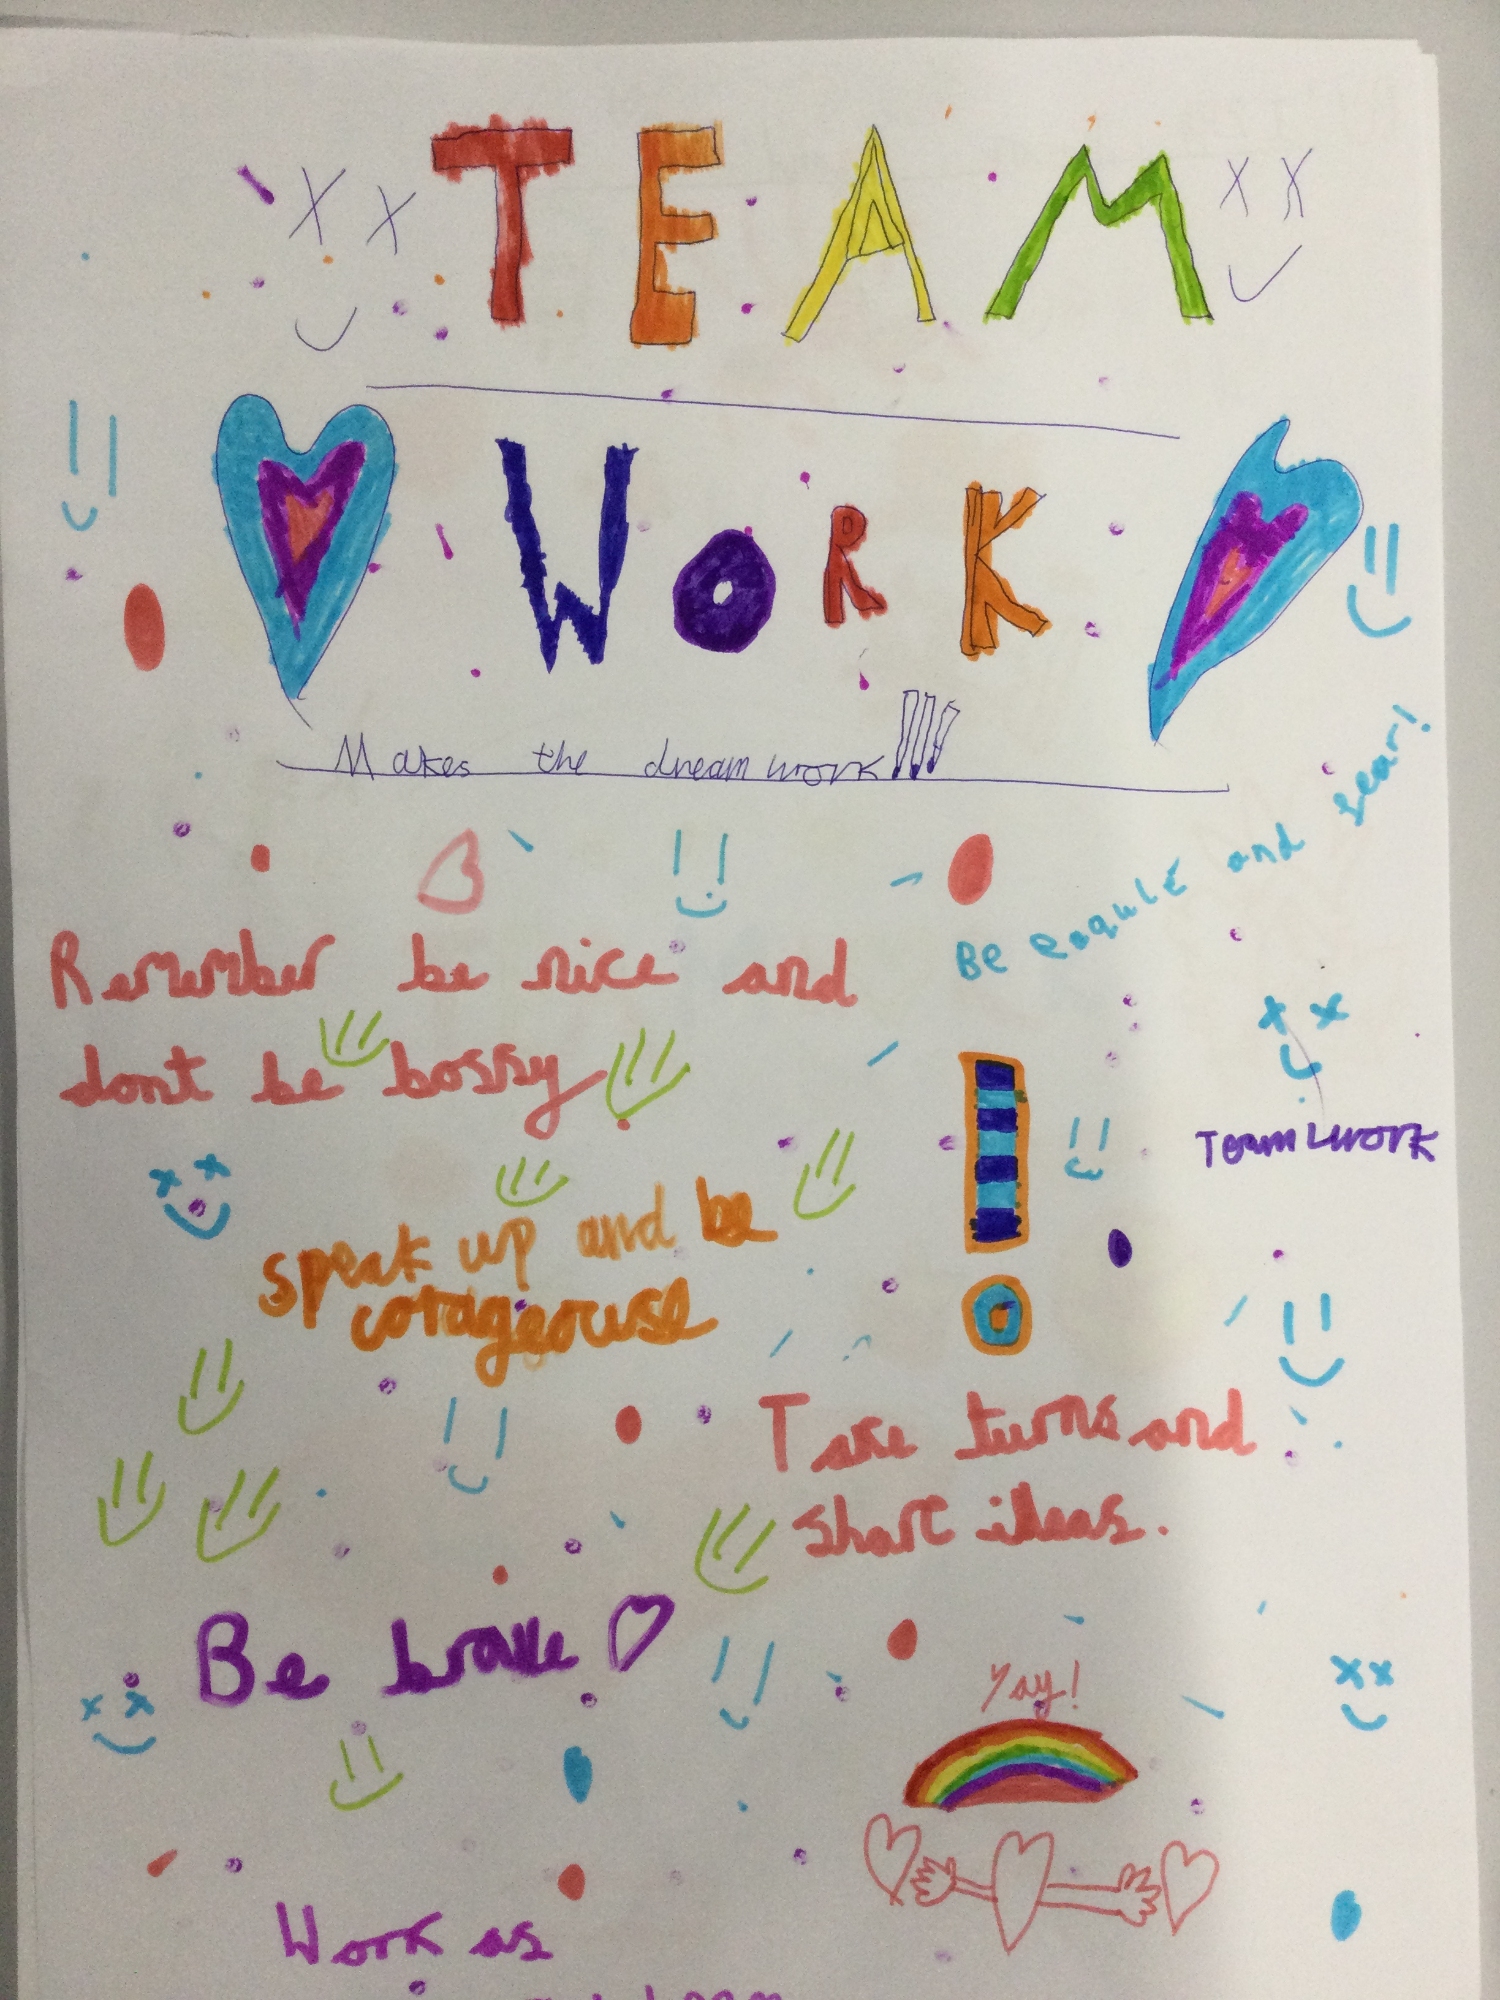 TEAM
WORK
Makes the dream work!!!
Be eaqule and fear!
Remember be nice and
dont be bossy
Teamwork
speak up and be
corageouse
Take turns and
share ideas.
Be brave
Yay!
Work as
team